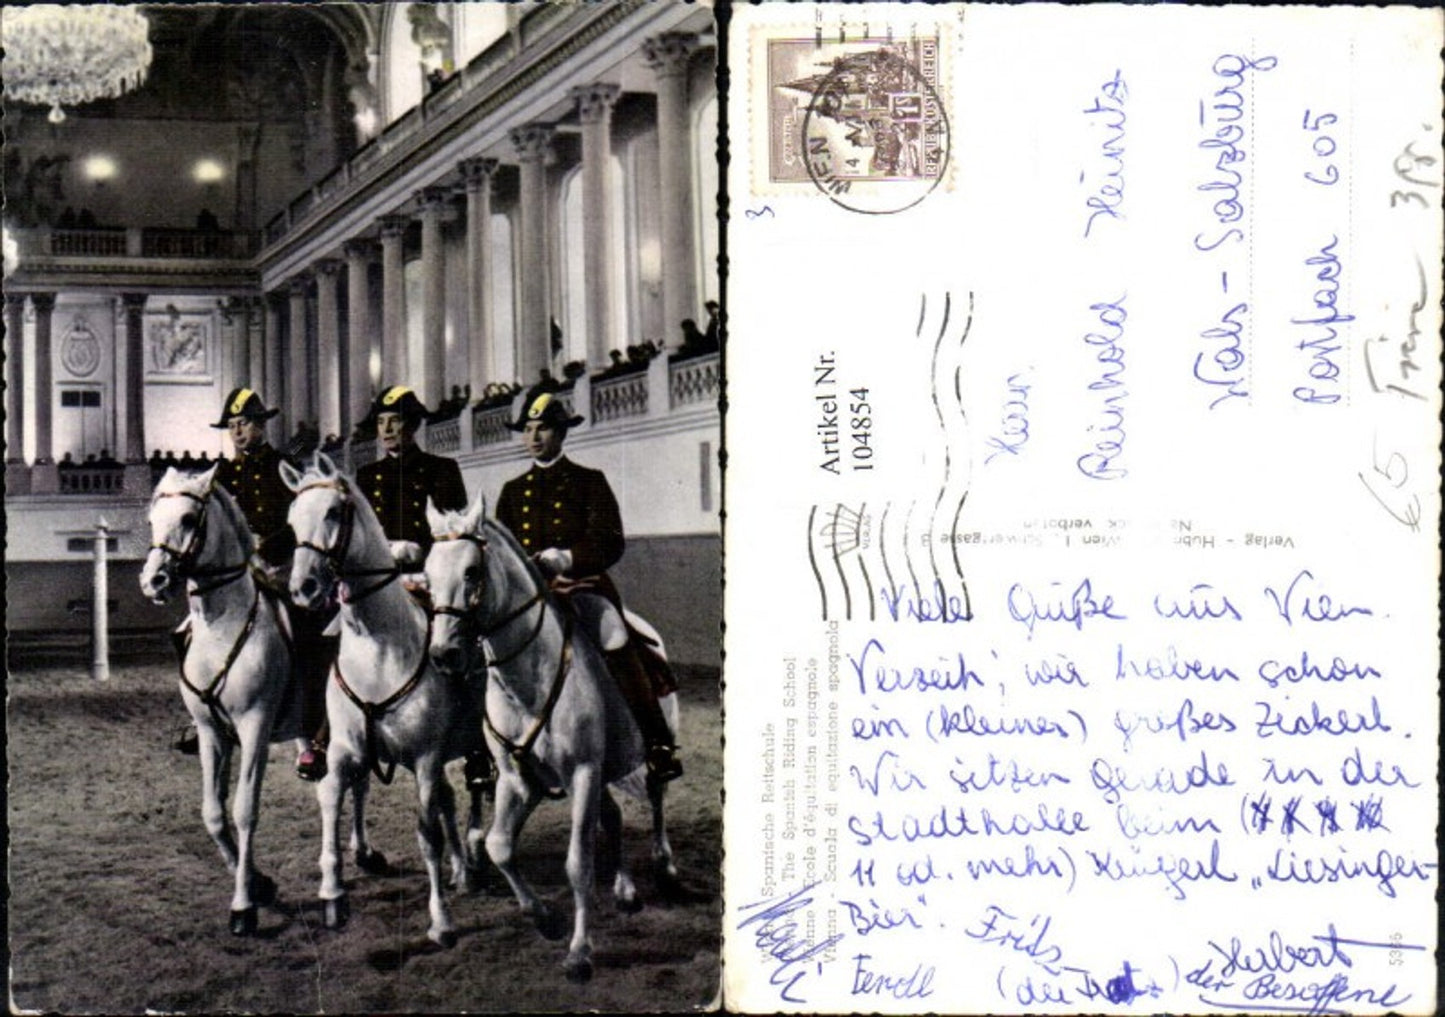 REPUBLIK ÖSTERREICH
WIEN
3
Artikel Nr.
104854
Herrn
Reinhold Heinitz
Wals-Salzburg
Postfach 605
€5
38.
Verlag - Hubn Wien I., Schwertgasse
verboten
Viele Grüße aus Wien.
Verzeih', wir haben schon
ein (kleines) großes Zickerl.
Wir sitzen gerade in der
Stadthalle beim (
11 od. mehr) Krügerl „Liesinger-
Bier".
Fritz
Ferdl
(der
Herbert
der Besoffene
Spanische Reitschule
The Spanish Riding School
Vienne - Ecole d'équitation espagnole
Vienna - Scuola di equitazione spagnola